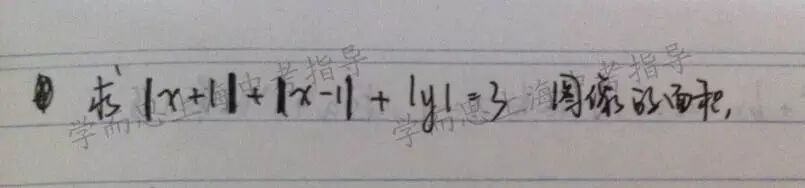 求 |x+1|+|x-1|+|y|=3 图像的面积,
学而思上海中考指导
学而思上海中考指导